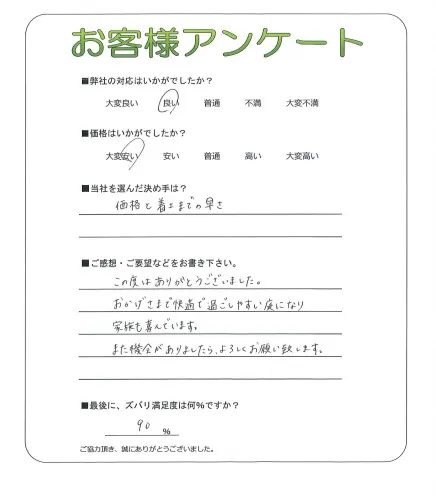 お客様アンケート
■弊社の対応はいかがでしたか？
大変良い 良い 普通 不満 大変不満
■価格はいかがでしたか？
大変安い 安い 普通 高い 大変高い
■当社を選んだ決め手は？
価格と着工までの早さ
■ご感想・ご要望などをお書き下さい。
この度はありがとうございました。
おかげさまで快適で過ごしやすい庭になり
家族も喜んでいます。
また機会がありましたら、よろしくお願い致します。
■最後に、ズバリ満足度は何%ですか？
90 %
ご協力頂き、誠にありがとうございました。